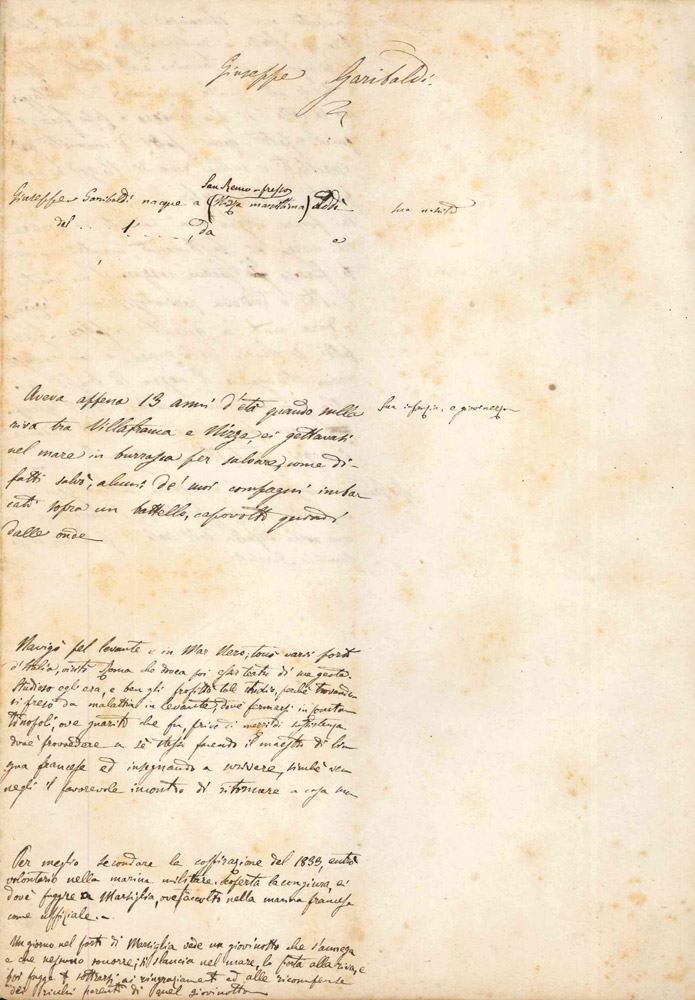 Giuseppe Garibaldi.
San Remo
Giuseppe Garibaldi nacque a (Nizza marittima) addì
sua nascita
del . . . 1 . . . . , da
e
Aveva appena 13 anni d'età quando nella
Sua infanzia, e giovinezza
riva tra Villafranca e Nizza, ei gettavasi
nel mare in burrasca per salvare, come di-
fatti salvò, alcuni de' suoi compagni imbar
cati sopra un battello, capovolto quindi
dalle onde
Navigò pel levante e in Mar Nero; toccò varii porti
d'Italia, visitò Roma che dovea poi esser teatro di sue gesta.
Studioso egli era, e ben gli profittò tale studio, perchè trovandosi
ei preso da malattia in levante, dovè fermarsi in Costan
tinopoli, ove guarito che fu, privo di mezzi di sussistenza
dovè provvedere a sè stesso facendo il maestro di lin
gua francese ed insegnando a scrivere, sinchè ven
negli il favorevole incontro di ritornare a casa sua
Per meglio secondare la cospirazione del 1833, entrò
volontario nella marina militare. Scoperta la congiura, ei
dovè fuggire a Marsiglia, ove accolto nella marina francese
come uffiziale. -
Un giorno nel porto di Marsiglia vede un giovinotto che s'annega
e che nessuno soccorre; si slancia nel mare, lo porta alla riva, e
poi fugge sottrarsi ai ringraziamenti ed alle ricompense
dei ricchi parenti di quel giovinotto